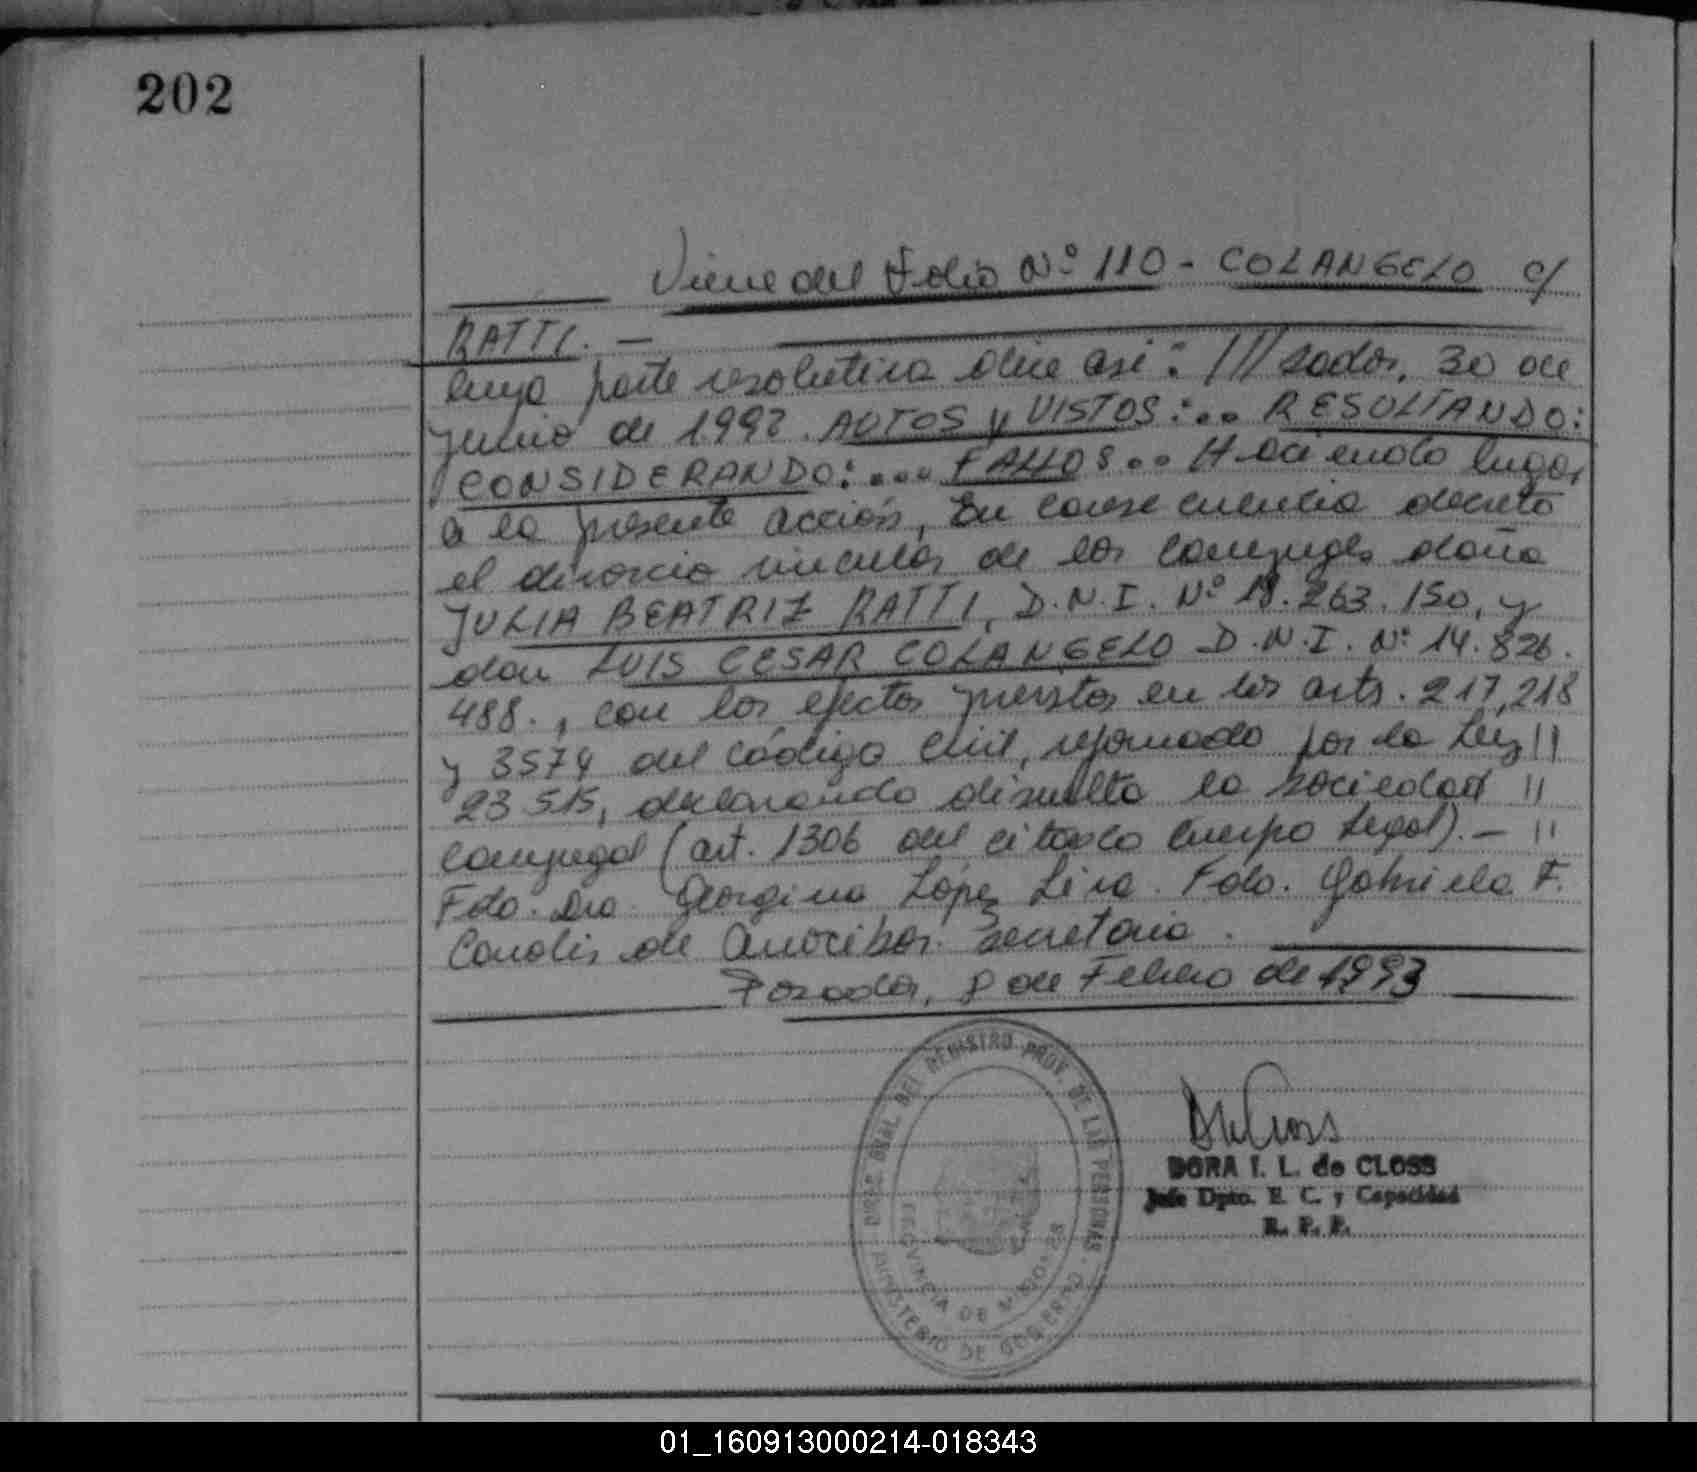 202
Viene del Folio Nº 110 - COLANGELO c/
RATTI. —
cuya parte resolutiva dice así: ///sadas, 30 de
junio de 1992. AUTOS y VISTOS:... RESULTANDO:
CONSIDERANDO:... FALLO:... Haciendo lugar
a la presente acción, En consecuencia decreto
el divorcio vincular de los conyuges doña
JULIA BEATRIZ RATTI, D.N.I. Nº 18.263.150, y
don LUIS CESAR COLANGELO D.N.I. Nº 14.826.
488., con los efectos previstos en los arts. 217, 218
y 3574 del código Civil, reformado por la Ley //
23.515, declarando disuelta la sociedad //
conyugal (art. 1306 del citado Cuerpo Legal). — //
Fdo. Dra. Georgina López Liva. Fdo. Gabriela F.
Canalis de secretaria.
Posadas, 8 de Febrero de 1993
DIREC. GRAL. DEL REGISTRO PROV. DE LAS PERSONAS
MINISTERIO DE GOBIERNO
PROVINCIA DE MISIONES
DORA I. L. de CLOSS
Jefe Dpto. E. C. y Capacidad
R. P. P.
01_160913000214-018343